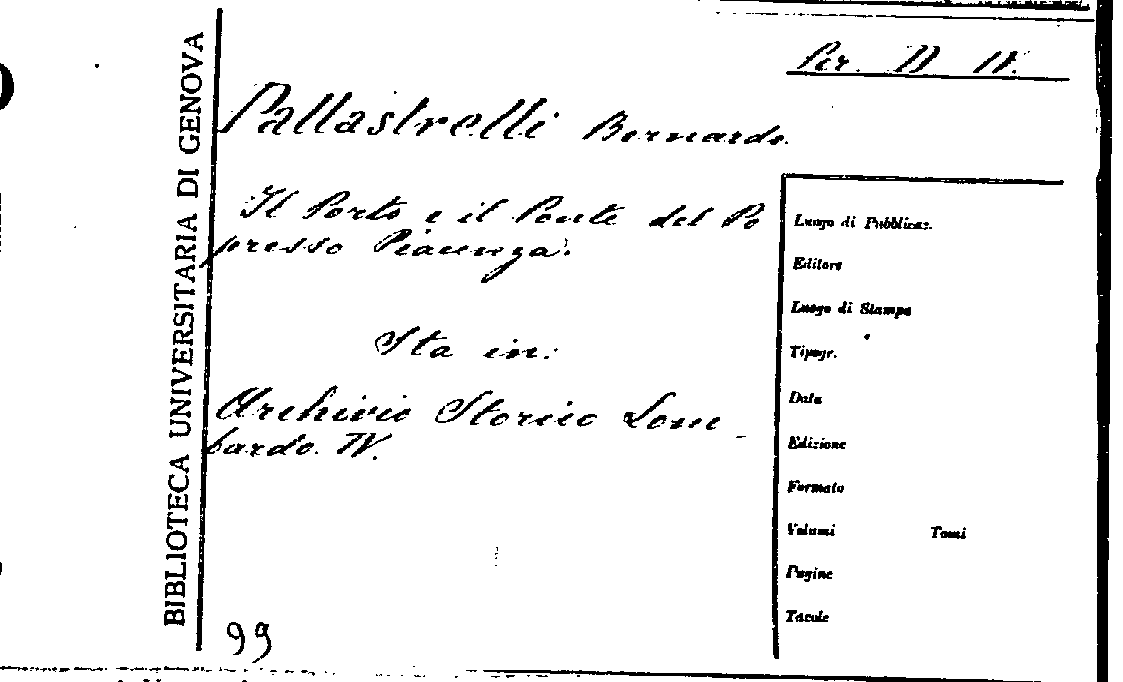 BIBLIOTECA UNIVERSITARIA DI GENOVA
Per. D IV.
Pallastrelli Bernardo.
Il Porto e il Ponte del Po
presso Piacenza.
Sta in:
Archivio Storico Lom-
bardo. IV.
99
Luogo di Pubblicaz.
Editore
Luogo di Stampa
Tipogr.
Data
Edizione
Formato
Volumi Tomi
Pagine
Tavole